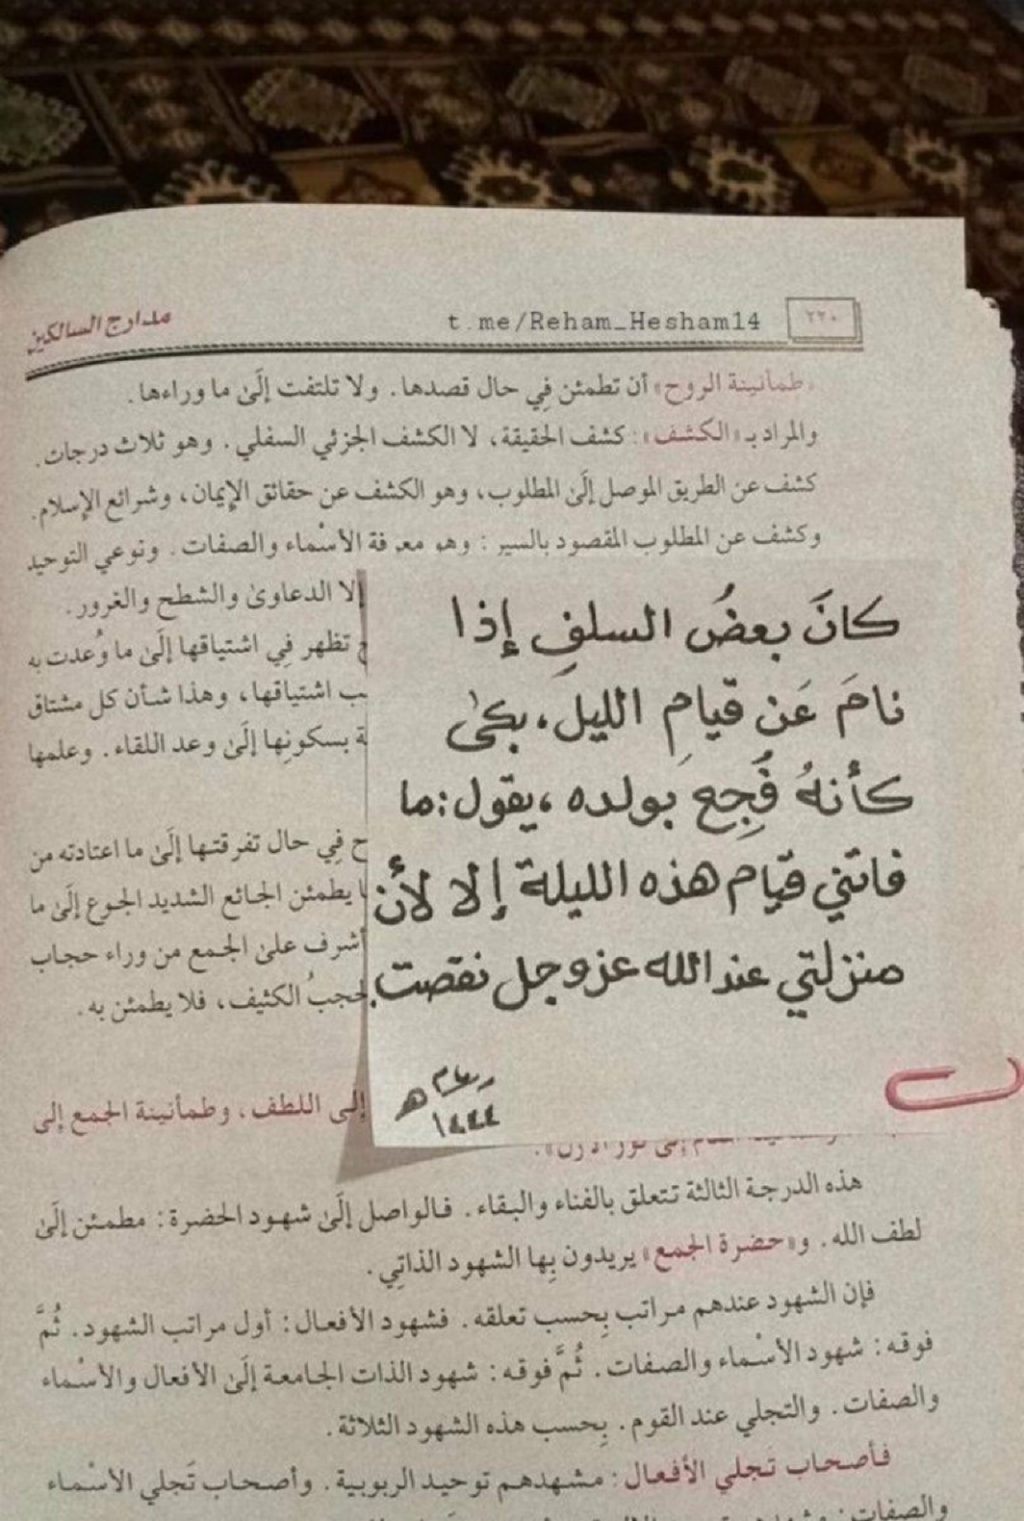 مدارج السالكين
t.me/Reham_Hesham14
٢٢٠
«طمأنينة الروح» أن تطمئن فِي حال قصدها. ولا تلتفت إلَىٰ ما وراءها.
والمراد بـ«الكشف»: كشف الحقيقة، لا الكشف الجزئي السفلي. وهو ثلاث درجات.
كشف عن الطريق الموصل إلَىٰ المطلوب، وهو الكشف عن حقائق الإيمان، وشرائع الإسلام.
وكشف عن المطلوب المقصود بالسير: وهو معرفة الأسْماء والصفات. ونوعي التوحيد
إلا الدعاوىٰ والشطح والغرور.
تظهر فِي اشتياقها إلَىٰ ما وُعدت به
اشتياقها، وهذا شأن كل مشتاق
بسكونِها إلَىٰ وعد اللقاء. وعلمها
فِي حال تفرقتها إلَىٰ ما اعتادته من
يطمئن الجائع الشديد الجوع إلَىٰ ما
أشرف علىٰ الجمع من وراء حجاب
الكثيف، فلا يطمئن به.
كانَ بعضُ السلفِ إذا
نامَ عَن قيامِ الليل، بكىٰ
كأنهُ فُجِعَ بولده، يقول: ما
فاتني قيام هذه الليلة إلا لأن
منزلتي عند الله عزوجل نقصت.
١٤٤٤ هـ
إلى اللطف، وطمأنينة الجمع إلى
هذه الدرجة الثالثة تتعلق بالفناء والبقاء. فالواصل إلَىٰ شهود الحضرة: مطمئن إلَىٰ
لطف الله. و«حضرة الجمع» يريدون بِها الشهود الذاتِي.
فإن الشهود عندهم مراتب بِحسب تعلقه. فشهود الأفعال: أول مراتب الشهود. ثُمَّ
فوقه: شهود الأسْماء والصفات. ثُمَّ فوقه: شهود الذات الجامعة إلَىٰ الأفعال والأسْماء
والصفات. والتجلي عند القوم. بِحسب هذه الشهود الثلاثة.
فأصحاب تَجلي الأفعال: مشهدهم توحيد الربوبية. وأصحاب تَجلي الأسْماء
والصفات: